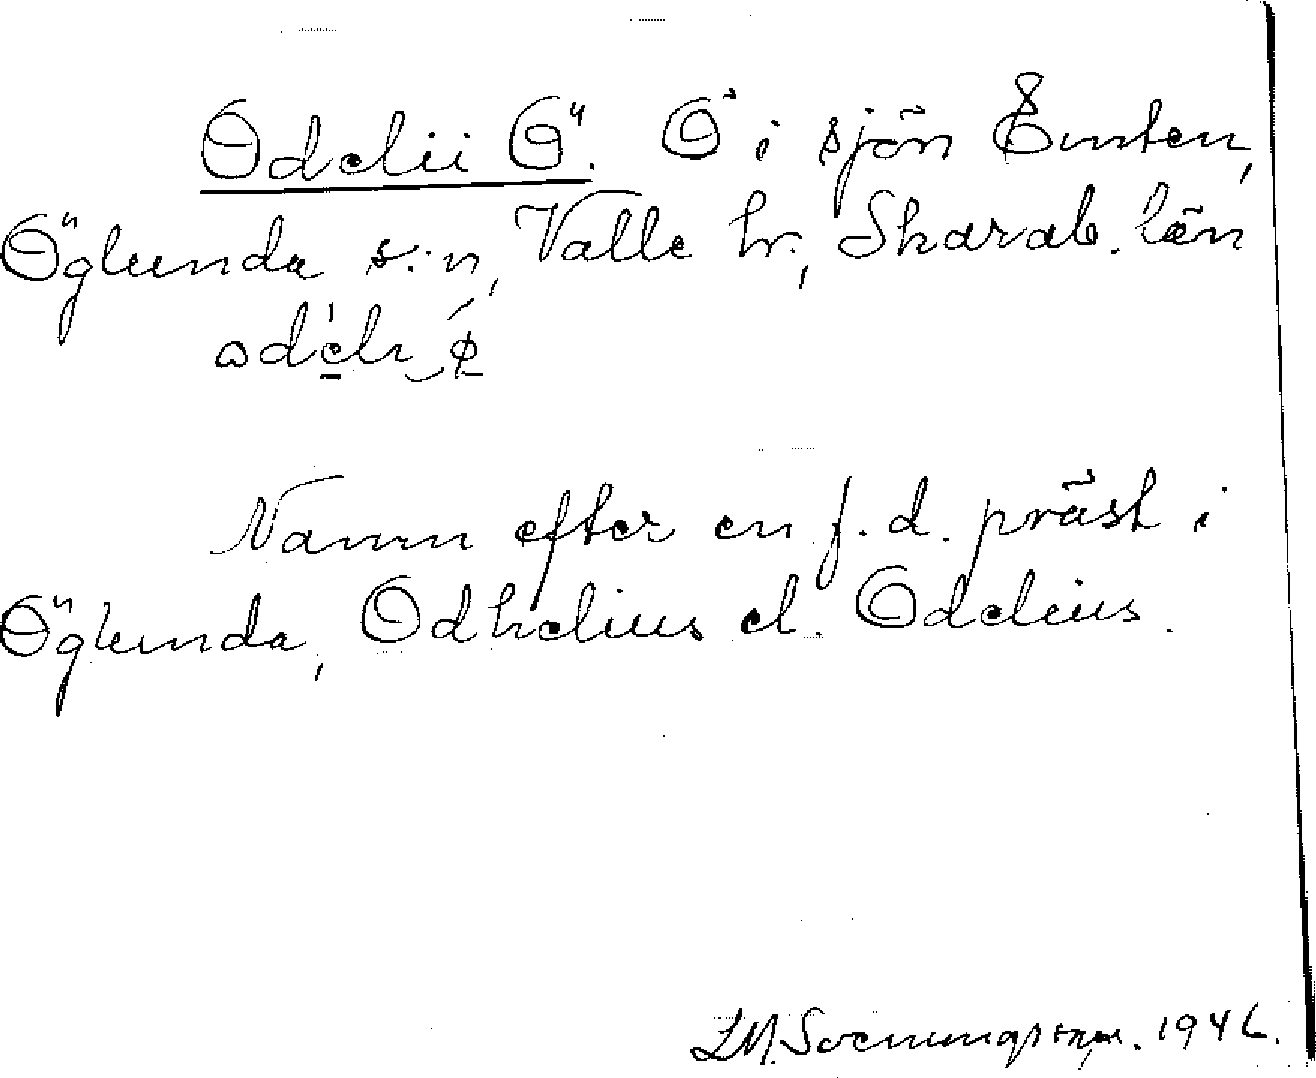 Odelii Ö. Ö i sjön Ämten,
Öglunda s:n, Valle hr., Skarab. län
Namn efter en f.d. präst i
Öglunda, Odhelius el. Odelius.
1946.